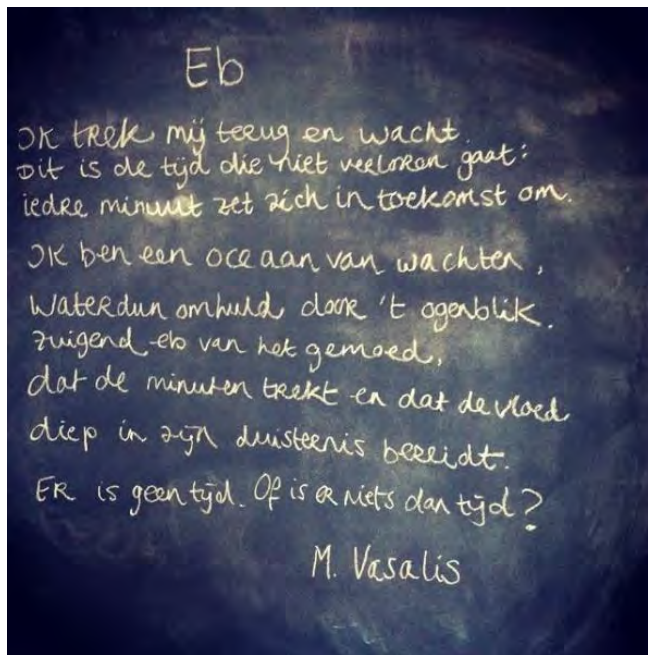 Eb
Ik trek mij terug en wacht.
Dit is de tijd die niet verloren gaat:
iedre minuut zet zich in toekomst om.
Ik ben een oceaan van wachten,
waterdun omhuld door 't ogenblik.
Zuigend eb van het gemoed,
dat de minuten trekt en dat de vloed
diep in zijn duisternis bereidt.
Er is geen tijd. Of is er niets dan tijd?
M. Vasalis